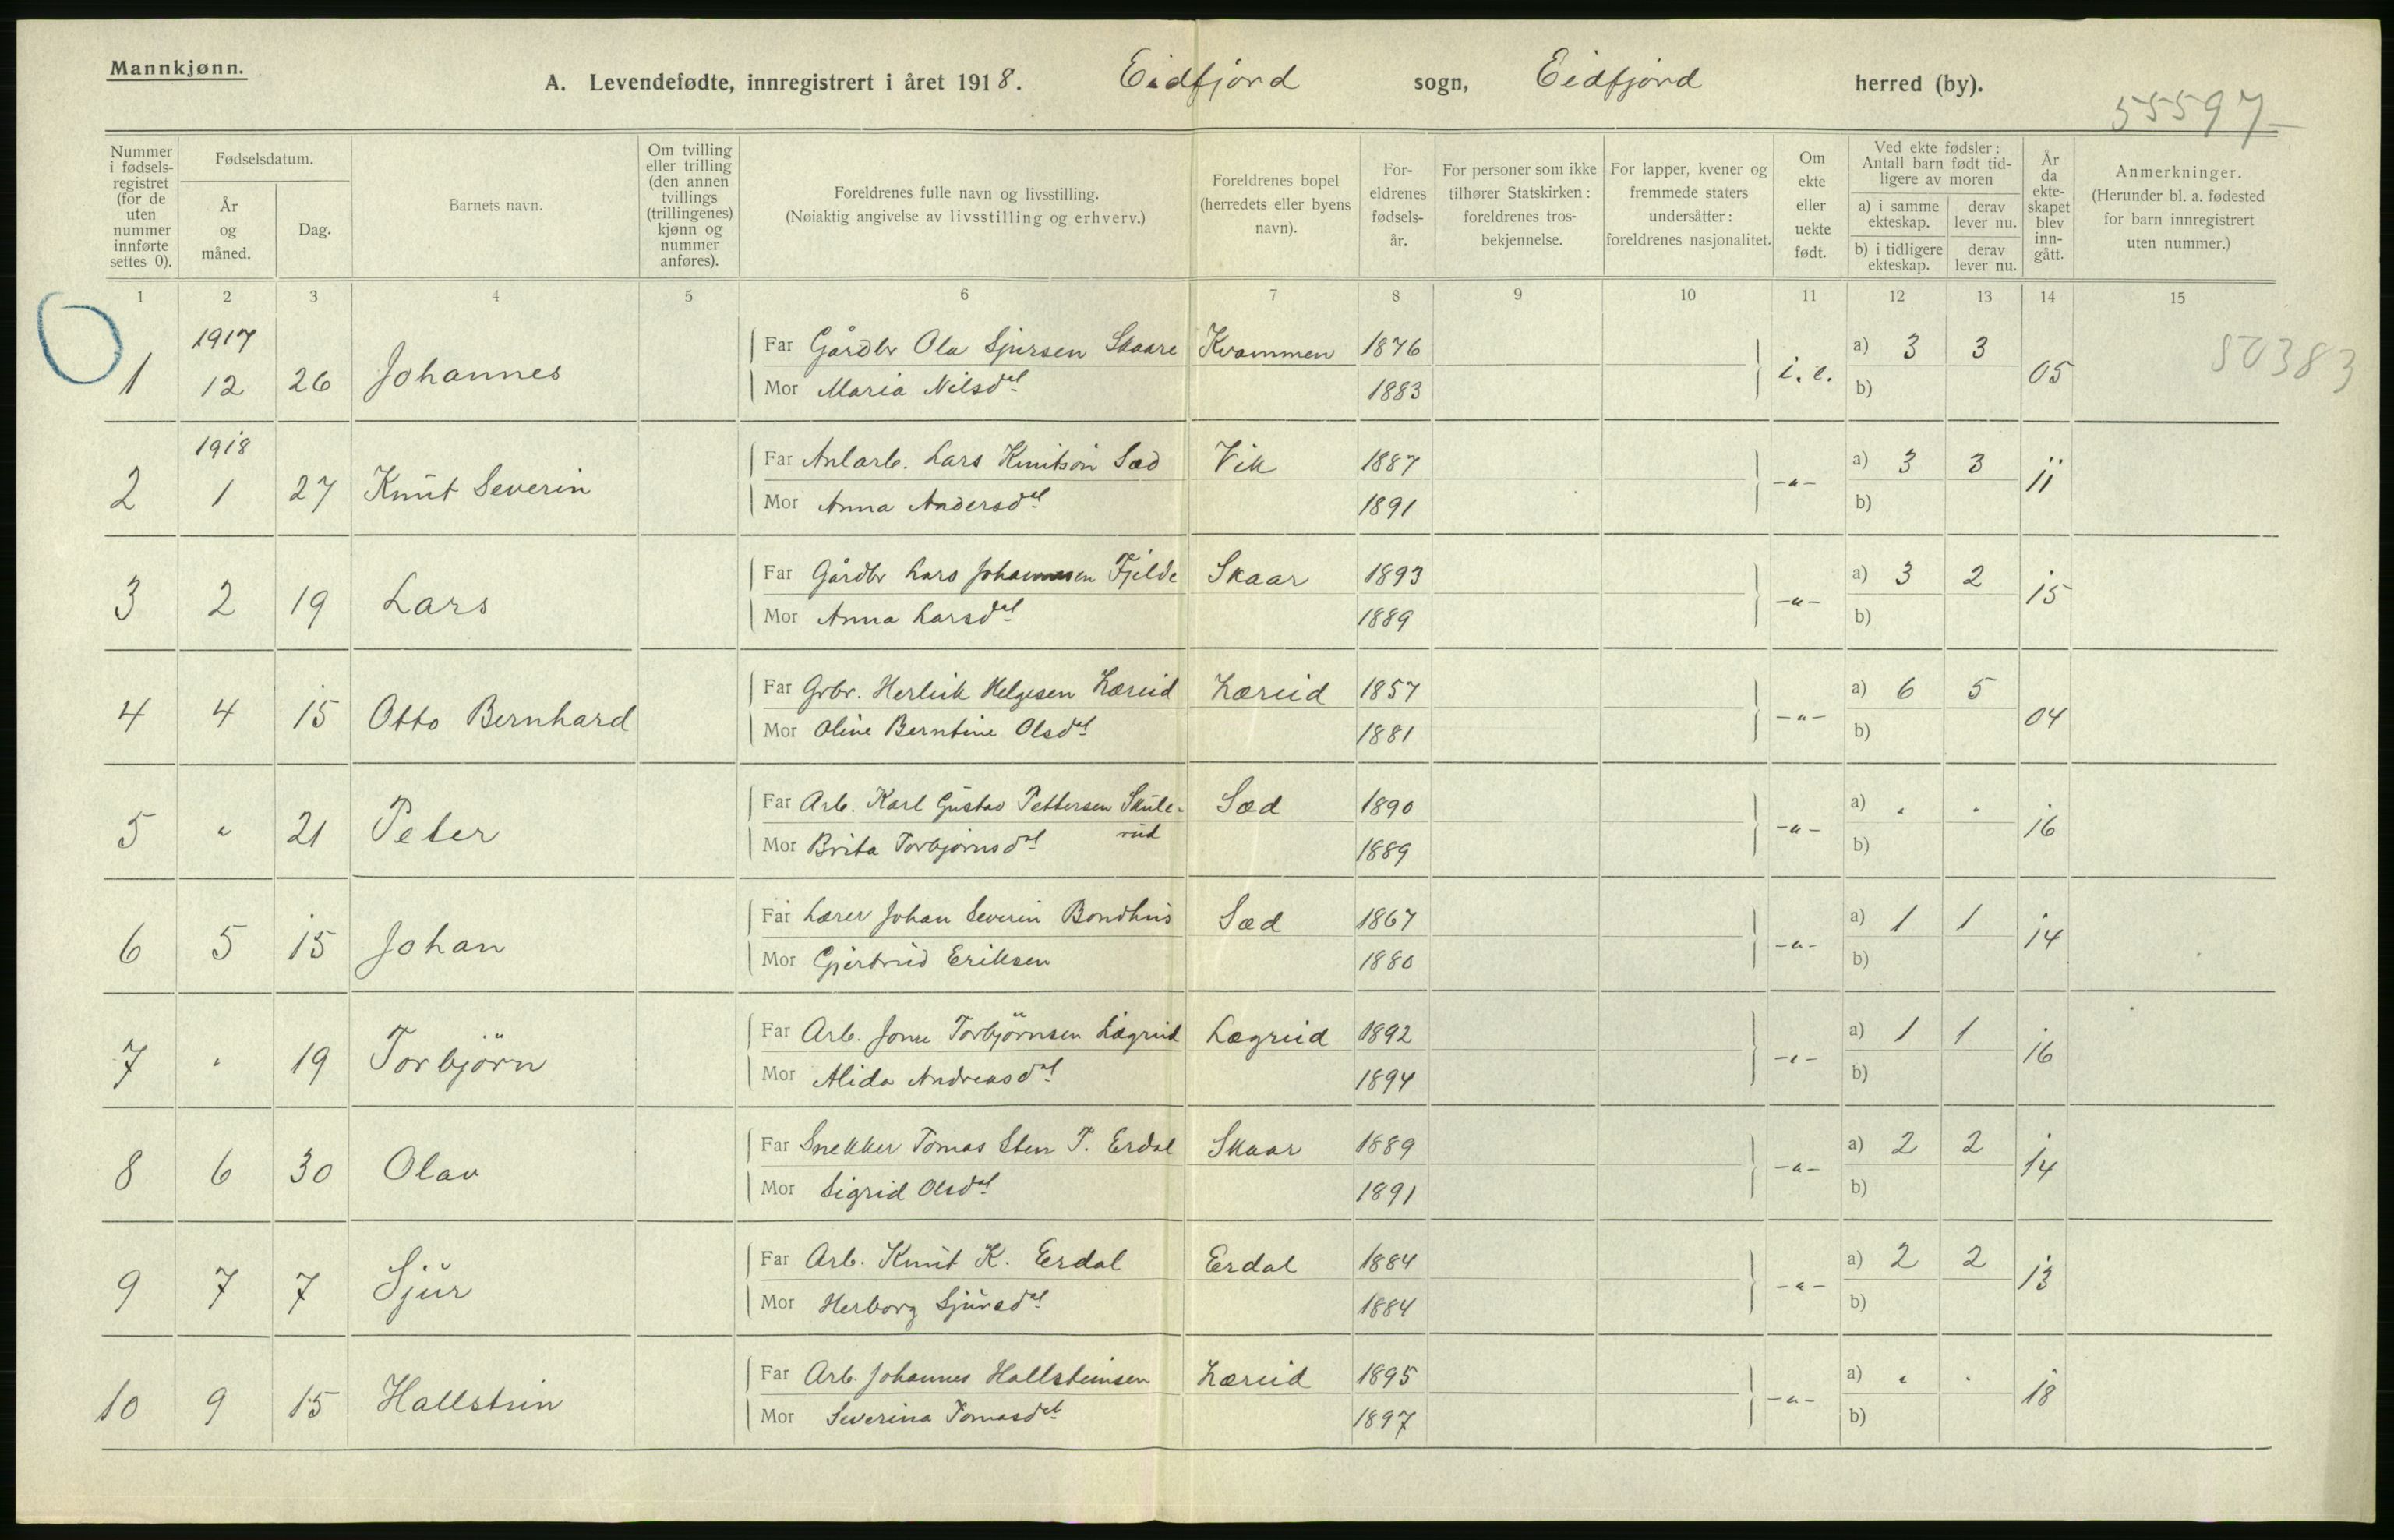 Mannkjønn.
A. Levendefødte, innregistrert i året 1918. Eidfjord sogn, Eidfjord herred (by).
55597
Nummer i fødsels-registret (for de uten nummer innførte settes 0).
Fødselsdatum.
År og måned.
Dag.
Barnets navn.
Om tvilling eller trilling (den annen tvillings (trillingenes) kjønn og nummer anføres).
Foreldrenes fulle navn og livsstilling. (Nøiaktig angivelse av livsstilling og erhverv.)
Foreldrenes bopel (herredets eller byens navn).
For-eldrenes fødsels-år.
For personer som ikke tilhører Statskirken: foreldrenes tros-bekjennelse.
For lapper, kvener og fremmede staters undersåtter: foreldrenes nasjonalitet.
Om ekte eller uekte født.
Ved ekte fødsler: Antall barn født tid-ligere av moren
a) i samme ekteskap. derav lever nu.
b) i tidligere ekteskap. derav lever nu.
År da ekte-skapet blev inn-gått.
Anmerkninger. (Herunder bl. a. fødested for barn innregistrert uten nummer.)
1 2 3 4 5 6 7 8 9 10 11 12 13 14 15
1917
Far Gårdbr Ola Sjursen Skaare Kvammen 1876 a) 3 3 50383
1 12 26 Johannes i.e. 05
Mor Maria Nilsdt 1883 b)
1918
Far Anlarb. Lars Knutson Sæd Vik 1887 a) 3 3
2 1 27 Knut Severin -"- 11
Mor Anna Andersdt 1891 b)
Far Gårdbr Lars Johannesen Fjelde Skaar 1893 a) 3 2
3 2 19 Lars -"- 15
Mor Anna Larsdt 1889 b)
Far Grbr. Herleik Helgesen Læreid Læreid 1857 a) 6 5
4 4 15 Otto Bernhard -"- 04
Mor Oline Berntine Olsdt 1881 b)
Far Arb. Karl Gustav Pettersen Skule- Sæd 1890 a) " "
rud
5 " 21 Peter -"- 16
Mor Brita Torbjørnsdt 1889 b)
Far Lærer Johan Severin Bondhus Sæd 1867 a) 1 1
6 5 15 Johan -"- 14
Mor Gjertrud Eriksen 1880 b)
Far Arb. Jone Torbjörnsen Lægreid Lægreid 1892 a) 1 1
7 " 19 Torbjörn -"- 16
Mor Alida Andreasdt 1894 b)
Far Snekker Tomas Sten T. Erdal Skaar 1889 a) 2 2
8 6 30 Olav -"- 14
Mor Sigrid Olsdt 1891 b)
Far Arb. Knut K. Erdal Erdal 1884 a) 2 2
9 7 7 Sjur -"- 13
Mor Herborg Sjursdt 1884 b)
Far Arb. Johannes Hallsteinsen Læreid 1895 a) " "
10 9 15 Hallstein -"- 18
Mor Severina Tomasdt 1897 b)